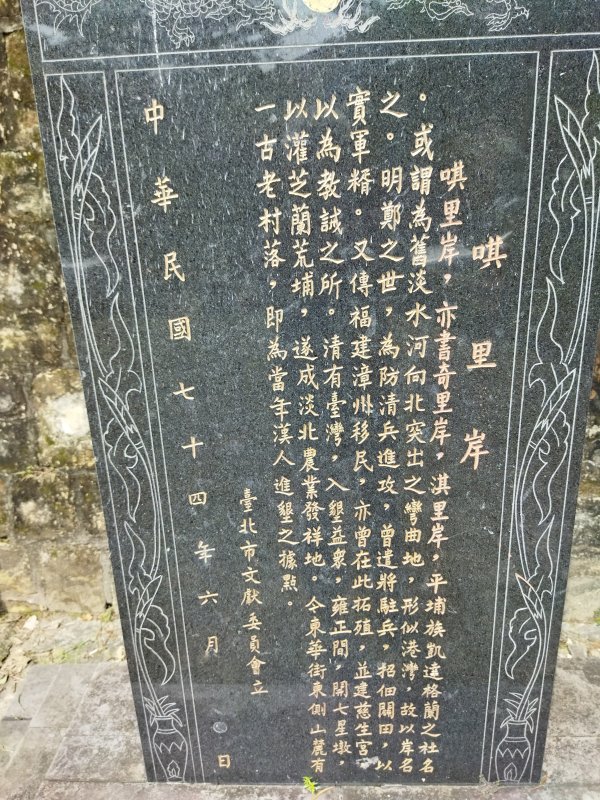 唭里岸
唭里岸，亦書奇里岸，淇里岸，平埔族凱達格蘭之社名
。或謂為舊淡水河向北突出之彎曲地，形似港灣，故以岸名
之。明鄭之世，為防清兵進攻，曾遣將駐兵，招佃闢田，以
實軍糈。又傳福建漳州移民，亦曾在此拓殖，並建慈生宮，
以為教誠之所。清有臺灣，入墾益衆，雍正間，開七星墩，
以灌芝蘭荒埔，遂成淡北農業發祥地。今東華街東側山麓有
一古老村落，即為當年漢人進墾之據點。
臺北市文獻委員會立
中華民國七十四年六月　日